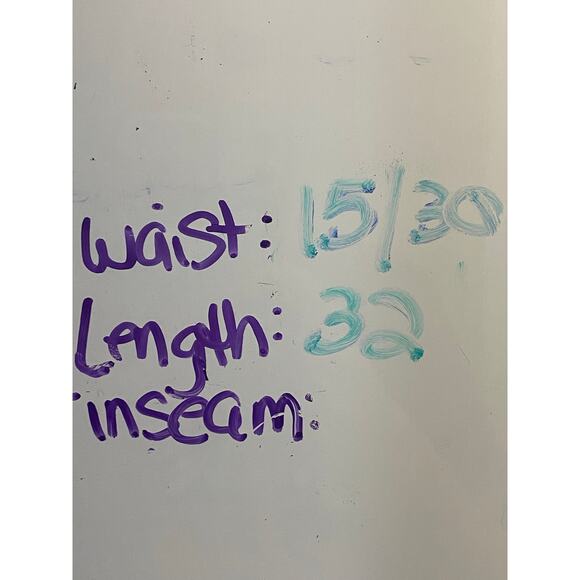 Waist: 15/30
Length: 32
inseam: